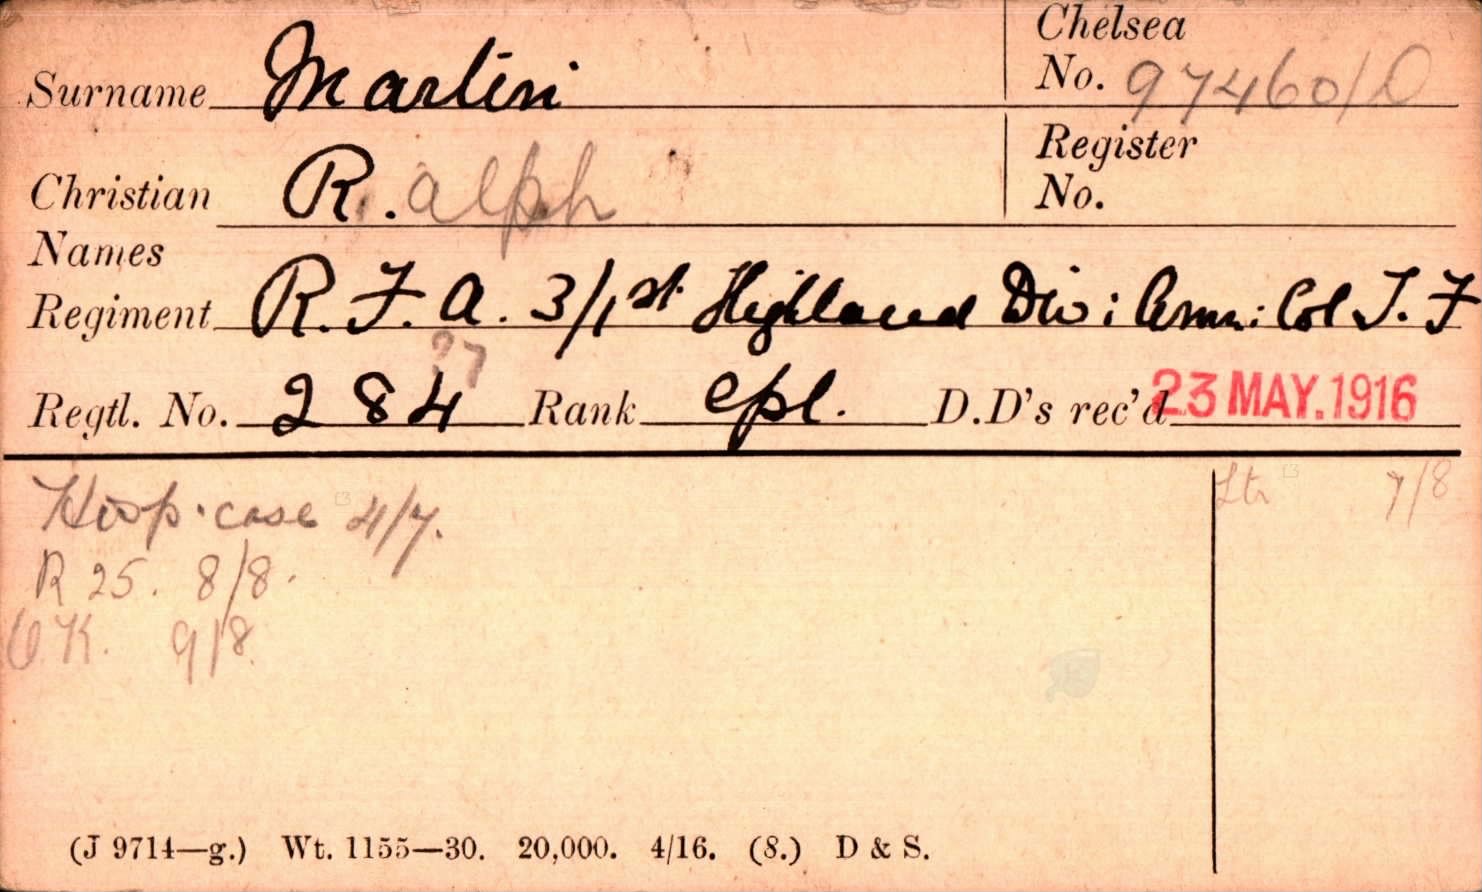 Surname Martin
Chelsea
No. 97460/D
Christian R. alph
Names
Register
No.
Regiment R. F. A. 3/1st Highland Div: Amn: Col T. F
?7
Regtl. No. 284 Rank Cpl. D.D's rec'd 23 MAY. 1916
Hosp. case 4/7.
Ltr 7/8
R 25. 8/8.
O.K. 9/8.
(J 9714—g.) Wt. 1155—30. 20,000. 4/16. (S.) D & S.